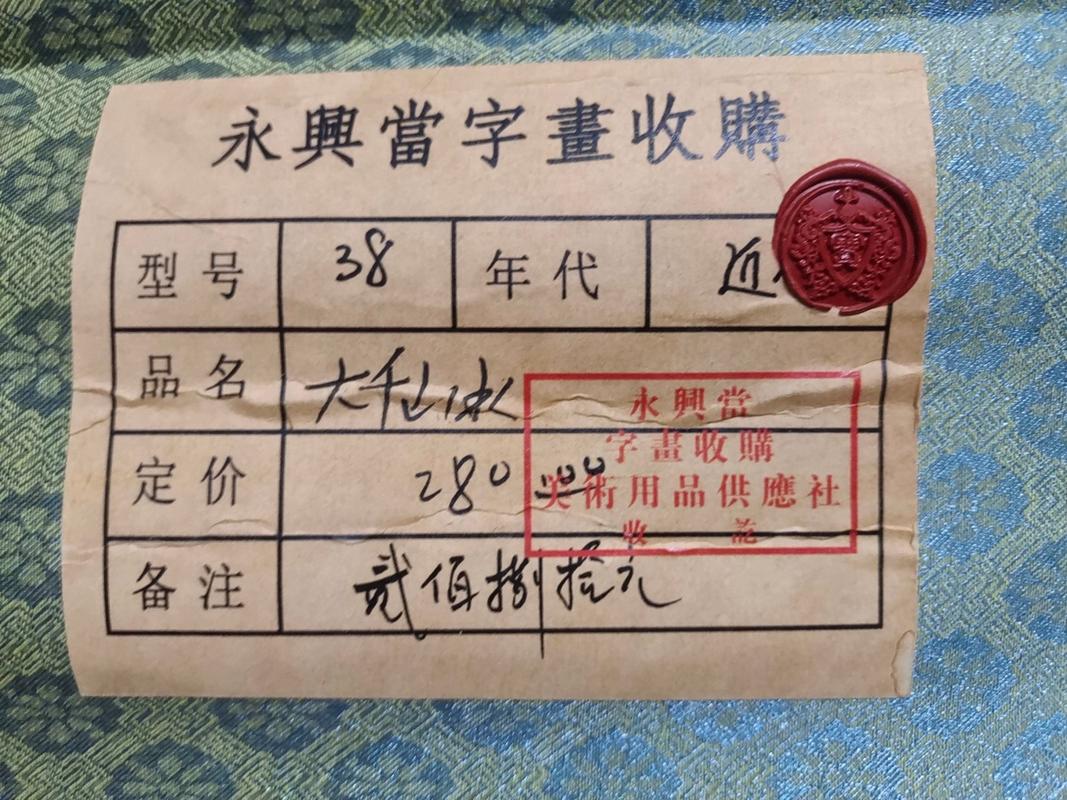 永興當字畫收購
型号 38 年代 近
品名 大千山水
定价 280.00
备注 贰佰捌拾元
永興當
字畫收購
美術用品供應社
收訖